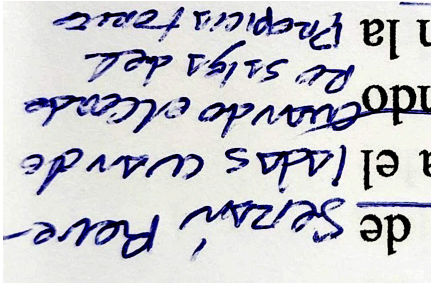 de Serán Reve-
a el ladas cuando
ndo Cuando el Corde
Ro Salga del
n la Propiciatorio